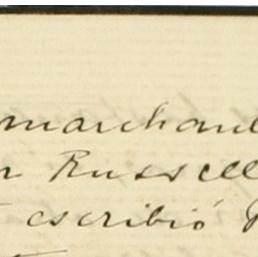 marchand
Russell
escribió